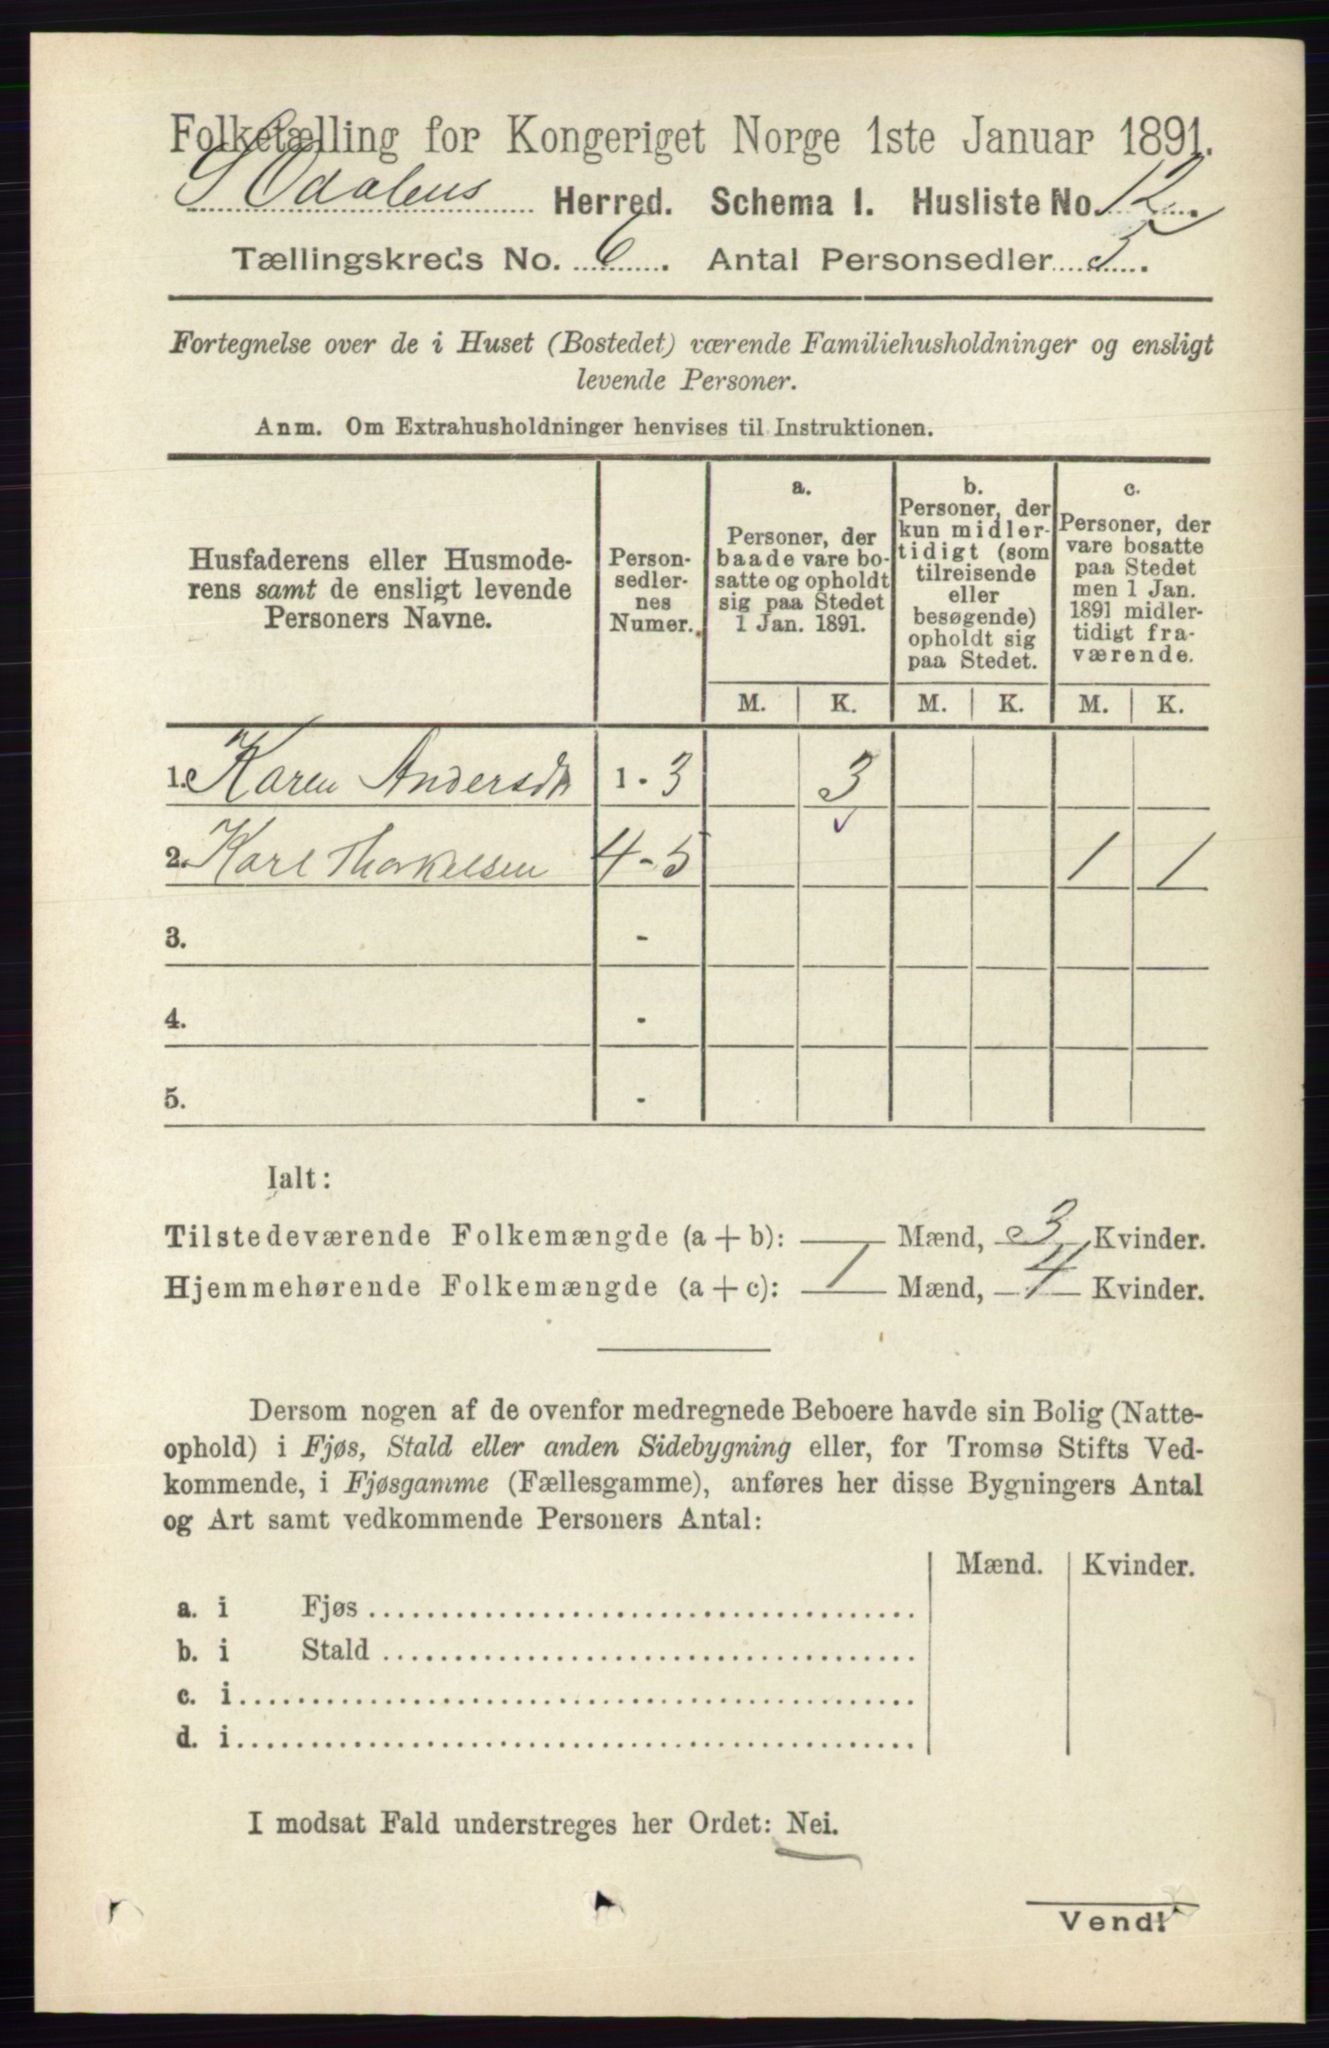 Folketælling for Kongeriget Norge 1ste Januar 1891.
S Odalens Herred. Schema 1. Husliste No. 12.
Tællingskreds No. 6. Antal Personsedler 5.
Fortegnelse over de i Huset (Bostedet) værende Familiehusholdninger og ensligt
levende Personer.
Anm. Om Extrahusholdninger henvises til Instruktionen.
Husfaderens eller Husmode-
rens samt de ensligt levende
Personers Navne.
Person-
sedler-
nes
Numer.
a.
Personer, der
baade vare bo-
satte og opholdt
sig paa Stedet
1 Jan. 1891.
b.
Personer, der
kun midler-
tidigt (som
tilreisende
eller
besøgende)
opholdt sig
paa Stedet.
c.
Personer, der
vare bosatte
paa Stedet
men 1 Jan.
1891 midler-
tidigt fra-
værende.
M. K. M. K. M. K.
1. Karen Andersdt 1 - 3 3
2. Karl Thorkelsen 4 - 5 1 1
3. -
4. -
5. -
Ialt:
Tilstedeværende Folkemængde (a + b): — Mænd, 3 Kvinder.
Hjemmehørende Folkemængde (a + c): 1 Mænd, 4 Kvinder.
Dersom nogen af de ovenfor medregnede Beboere havde sin Bolig (Natte-
ophold) i Fjøs, Stald eller anden Sidebygning eller, for Tromsø Stifts Ved-
kommende, i Fjøsgamme (Fællesgamme), anføres her disse Bygningers Antal
og Art samt vedkommende Personers Antal:
Mænd. Kvinder.
a. i Fjøs
b. i Stald
c. i
d. i
I modsat Fald understreges her Ordet: Nei.
Vend!